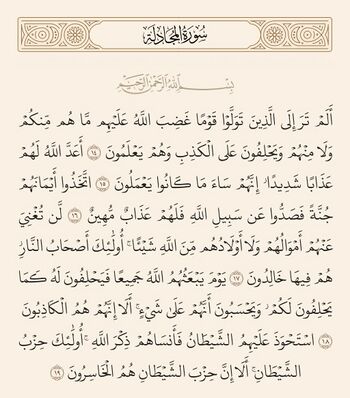 سُورَةُ المُجَادلة
بِسْمِ اللَّهِ الرَّحْمَٰنِ الرَّحِيمِ
أَلَمْ تَرَ إِلَى الَّذِينَ تَوَلَّوْا قَوْمًا غَضِبَ اللَّهُ عَلَيْهِم مَّا هُم مِّنكُمْ
وَلَا مِنْهُمْ وَيَحْلِفُونَ عَلَى الْكَذِبِ وَهُمْ يَعْلَمُونَ ١٤ أَعَدَّ اللَّهُ لَهُمْ
عَذَابًا شَدِيدًا ۖ إِنَّهُمْ سَاءَ مَا كَانُوا يَعْمَلُونَ ١٥ اتَّخَذُوا أَيْمَانَهُمْ
جُنَّةً فَصَدُّوا عَن سَبِيلِ اللَّهِ فَلَهُمْ عَذَابٌ مُّهِينٌ ١٦ لَّن تُغْنِيَ
عَنْهُمْ أَمْوَالُهُمْ وَلَا أَوْلَادُهُم مِّنَ اللَّهِ شَيْئًا ۚ أُولَٰئِكَ أَصْحَابُ النَّارِ ۖ
هُمْ فِيهَا خَالِدُونَ ١٧ يَوْمَ يَبْعَثُهُمُ اللَّهُ جَمِيعًا فَيَحْلِفُونَ لَهُ كَمَا
يَحْلِفُونَ لَكُمْ ۖ وَيَحْسَبُونَ أَنَّهُمْ عَلَىٰ شَيْءٍ ۚ أَلَا إِنَّهُمْ هُمُ الْكَاذِبُونَ
١٨ اسْتَحْوَذَ عَلَيْهِمُ الشَّيْطَانُ فَأَنسَاهُمْ ذِكْرَ اللَّهِ ۚ أُولَٰئِكَ حِزْبُ
الشَّيْطَانِ ۚ أَلَا إِنَّ حِزْبَ الشَّيْطَانِ هُمُ الْخَاسِرُونَ ١٩